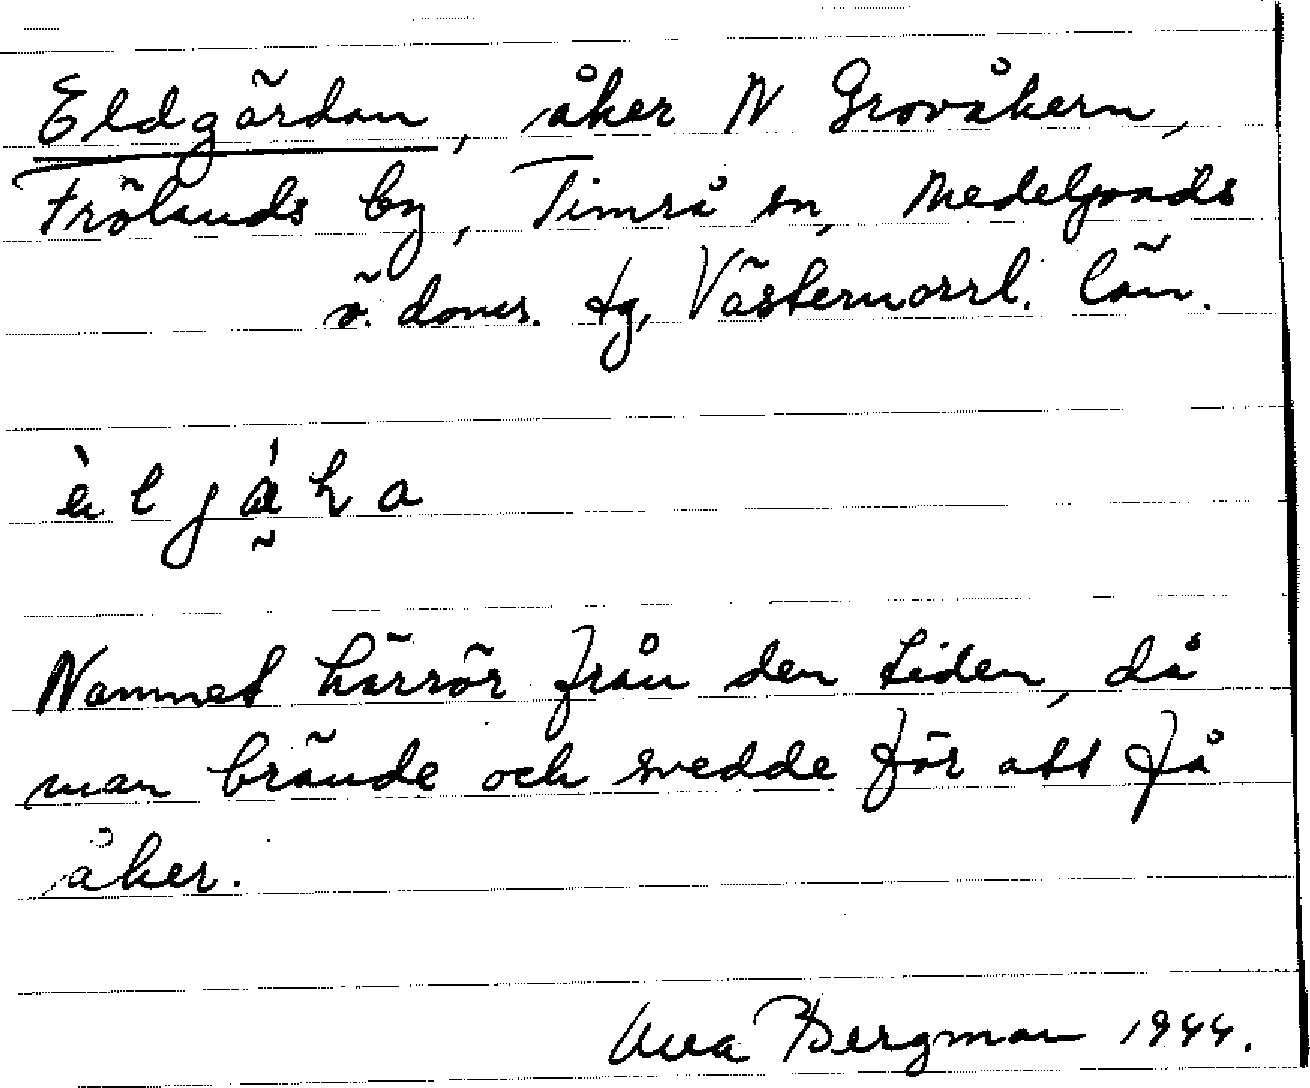 Eldgärdan, åker N Grovåkern,
Frölands by, Timrå sn, Medelpads
ö. doms. tg, Västernorrl. län.
Namnet härrör från den tiden, då
man brände och svedde för att få
åker.
Bergman 1944.